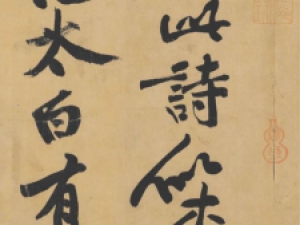 此詩似
太白有